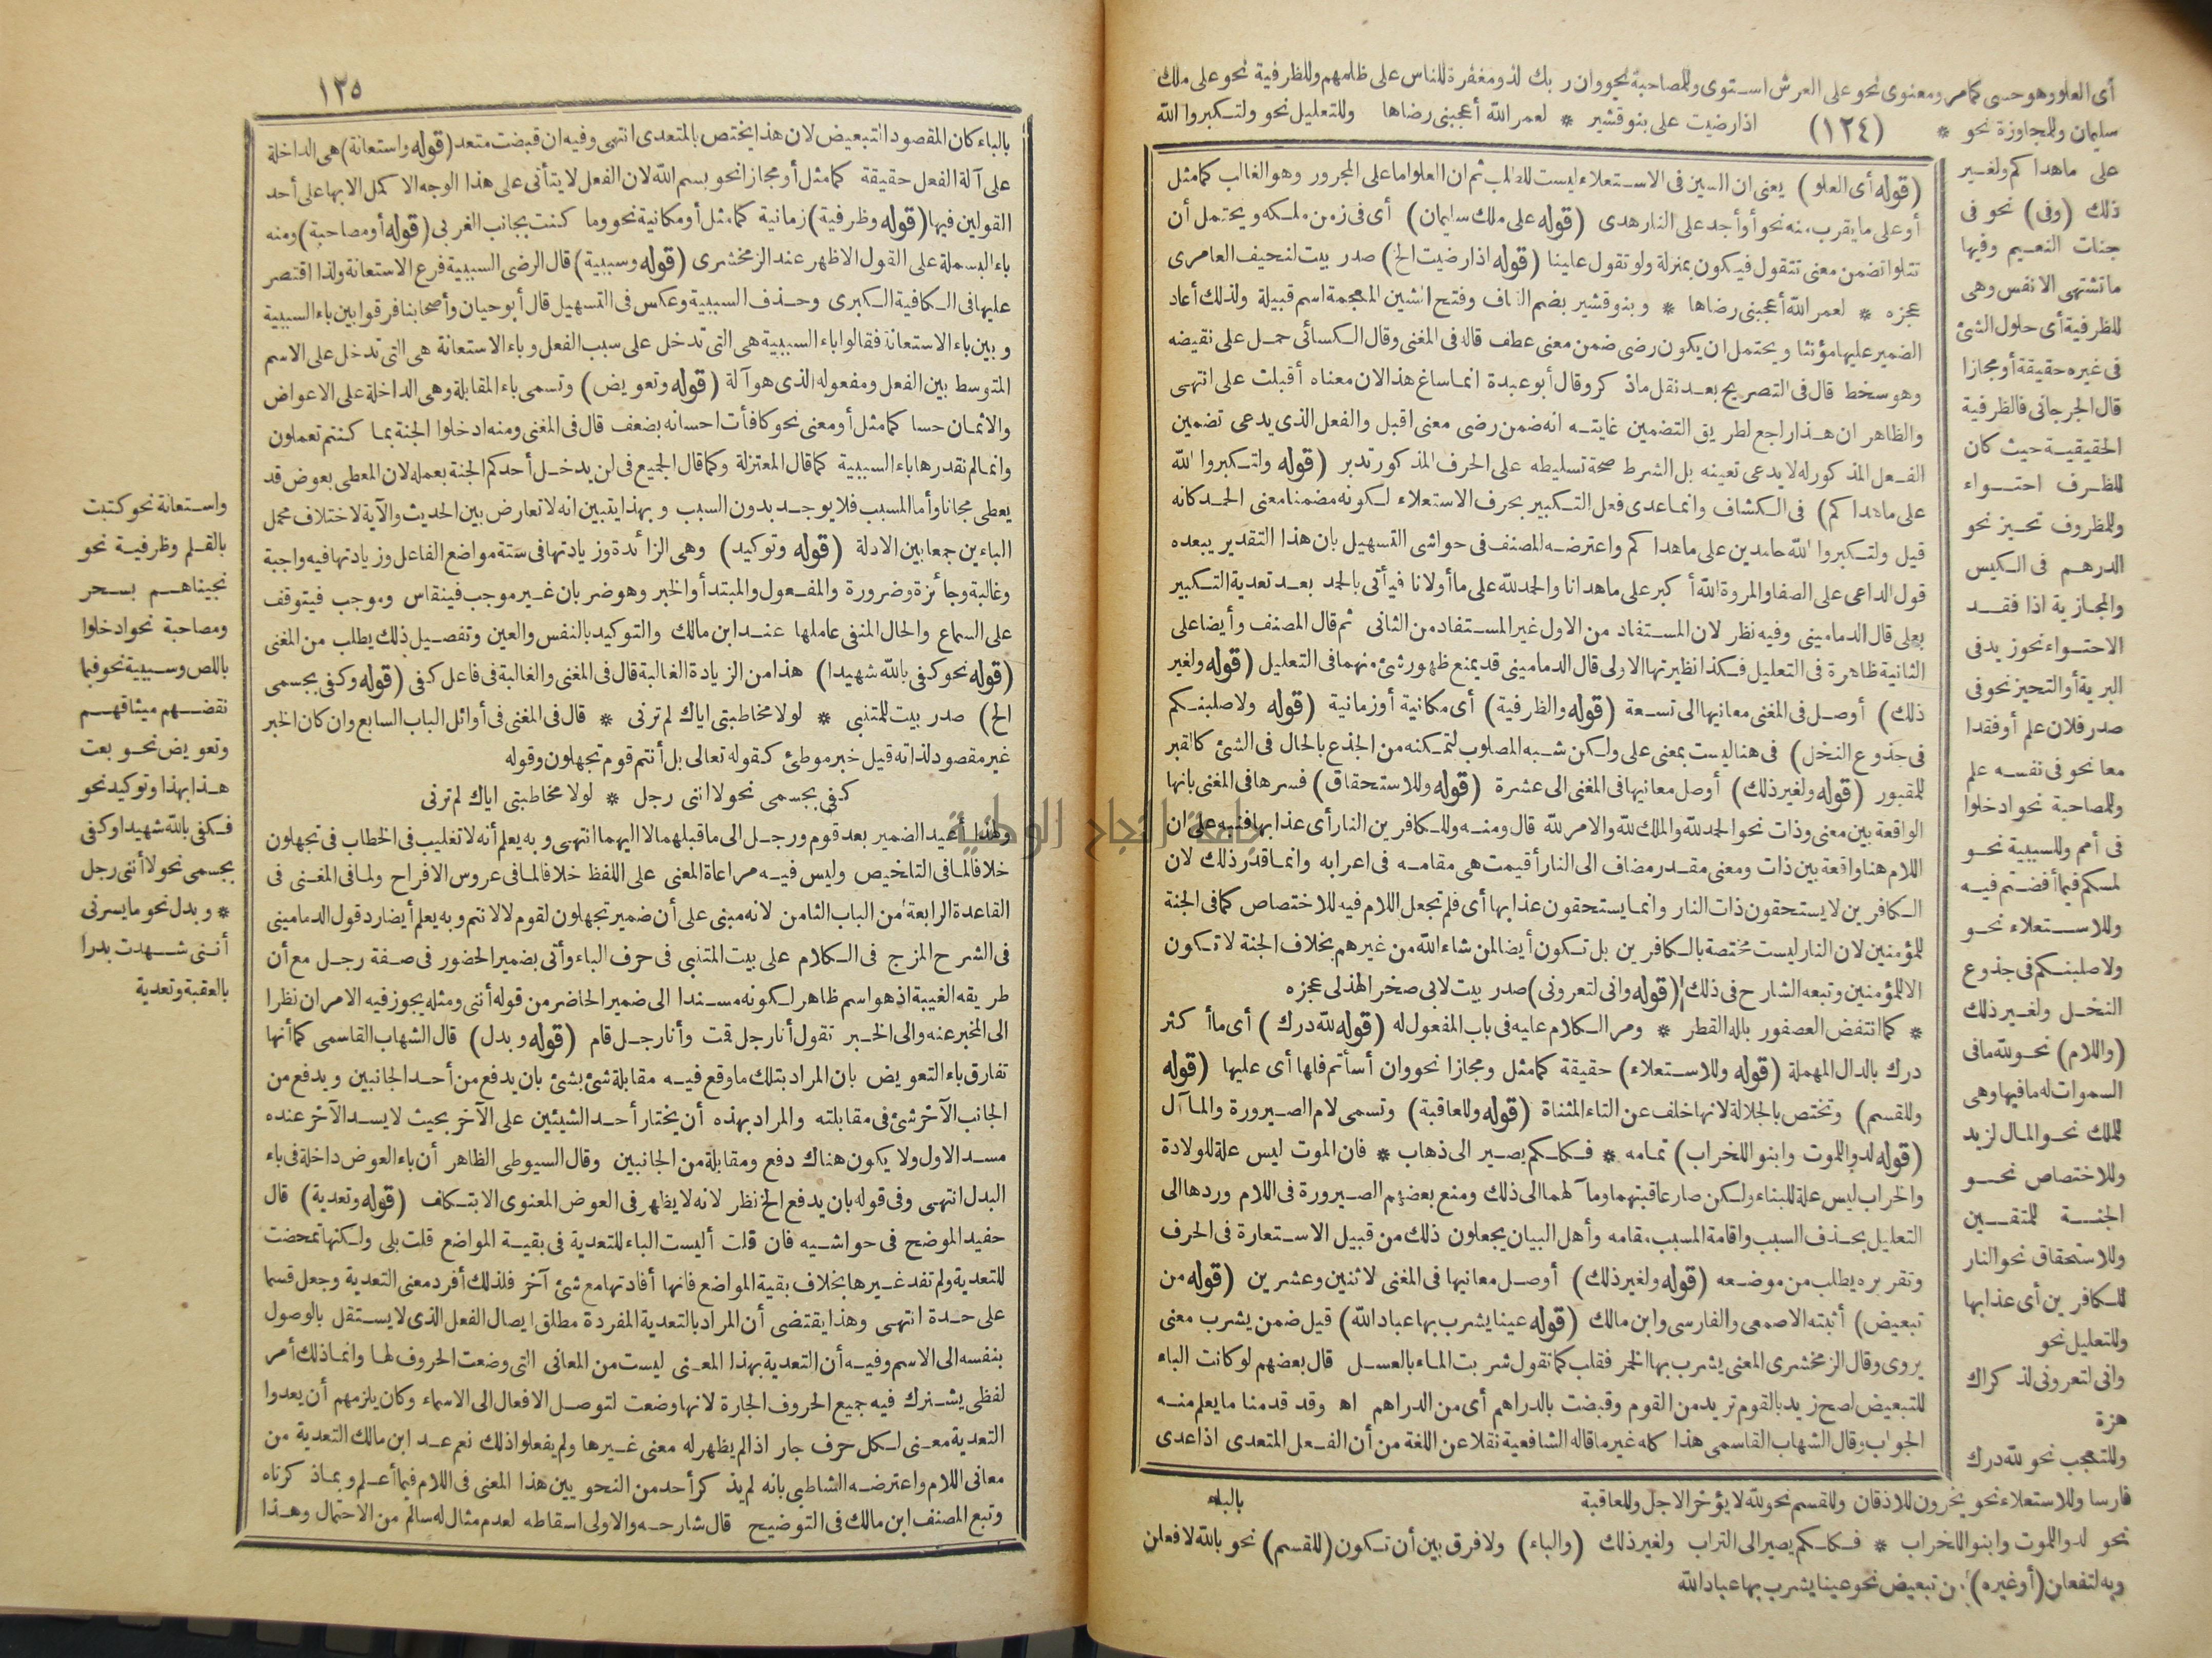 أى العلو وهو حسى كما مر ومعنوى نحو على العرش استوى وللمصاحبة نحو وان ربك لذو مغفرة للناس على ظلمهم وللظرفية نحو على ملك
سليمان وللمجاوزة نحو * (١٢٤) اذا رضيت على بنو قشير * لعمر الله أعجبنى رضاها وللتعليل نحو ولتكبروا الله
على ما هداكم ولغير
ذلك (وفى) نحو فى
جنات النعيم وفيها
ما تشتهى الانفس وهى
للظرفية أى حلول الشئ
فى غيره حقيقة أو مجازا
قال الجرجانى فالظرفية
الحقيقية حيث كان
للظرف احتواء
وللمظروف تحيز نحو
الدرهم فى الكيس
والمجازية اذا فقد
الاحتواء نحو زيد فى
البرية أو التحيز نحو فى
صدر فلان علم أو فقدا
معا نحو فى نفسه علم
وللمصاحبة نحو ادخلوا
فى أمم وللسببية نحو
لمسكم فيما أفضتم فيه
وللاستعلاء نحو
ولاصلبنكم فى جذوع
النخل ولغير ذلك
(واللام) نحو لله ما فى
السموات له ما فيها وهى
للملك نحو المال لزيد
وللاختصاص نحو
الجنة للمتقين
وللاستحقاق نحو النار
للكافرين أى عذابها
وللتعليل نحو
وانى لتعرونى لذكراك
هزة
وللتعجب نحو لله درك
(قوله أى العلو) يعنى ان السين فى الاستعلاء ليست للطلب ثم ان العلو اما على المجرور وهو الغالب كما مثل
أو على ما يقرب منه نحو أو أجد على النار هدى (قوله على ملك سليمان) أى فى زمن ملكه ويحتمل أن
تتلوا تضمن معنى تتقول فيكون بمنزلة ولو تقول علينا (قوله اذا رضيت الخ) صدر بيت لنحيف العامرى
عجزه * لعمر الله أعجبنى رضاها * وبنو قشير بضم القاف وفتح الشين المعجمة اسم قبيلة ولذلك أعاد
الضمير عليها مؤنثا ويحتمل ان يكون رضى ضمن معنى عطف قاله فى المغنى وقال الكسائى حمل على نقيضه
وهو سخط قال فى التصريح بعد نقل ما ذكر وقال أبو عبيدة انما ساغ هذا لان معناه أقبلت على انتهى
والظاهر ان هذا راجع لطريق التضمين غايته انه ضمن رضى معنى اقبل والفعل الذى يدعى تضمين
الفعل المذكور له لا يدعى تعينه بل الشرط صحة تسليطه على الحرف المذكور تدبر (قوله ولتكبروا الله
على ما هداكم) فى الكشاف وانما عدى فعل التكبير بحرف الاستعلاء لكونه مضمنا معنى الحمد كانه
قيل ولتكبروا الله حامدين على ما هداكم واعترضه المصنف فى حواشى التسهيل بان هذا التقدير يبعده
قول الداعى على الصفا والمروة الله أكبر على ما هدانا والحمد لله على ما أولانا فيأتى بالحمد بعد تعدية التكبير
بعلى قال الدمامينى وفيه نظر لان المستفاد من الاول غير المستفاد من الثانى ثم قال المصنف وأيضا على
الثانية ظاهرة فى التعليل فكذا نظيرتها الاولى قال الدمامينى قد يمنع ظهور شئ منهما فى التعليل (قوله ولغير
ذلك) أوصل فى المغنى معانيها الى تسعة (قوله والظرفية) أى مكانية أو زمانية (قوله ولاصلبنكم
فى جذوع النخل) فى هنا ليست بمعنى على ولكن شبه المصلوب لتمكنه من الجذع بالحال فى الشئ كالقبر
للمقبور (قوله ولغير ذلك) أوصل معانيها فى المغنى الى عشرة (قوله وللاستحقاق) فسرها فى المغنى بانها
الواقعة بين معنى وذات نحو الحمد لله والملك لله والامر لله قال ومنه وللكافرين النار أى عذابها فنبه على ان
اللام هنا واقعة بين ذات ومعنى مقدر مضاف الى النار أقيمت هى مقامه فى اعرابه وانما قدر ذلك لان
الكافرين لا يستحقون ذات النار وانما يستحقون عذابها أى فلم تجعل اللام فيه للاختصاص كما فى الجنة
للمؤمنين لان النار ليست مختصة بالكافرين بل تكون أيضا لمن شاء الله من غيرهم بخلاف الجنة لا تكون
الا للمؤمنين وتبعه الشارح فى ذلك (قوله وانى لتعرونى) صدر بيت لابى صخر الهذلى عجزه
* كما انتفض العصفور بلله القطر * ومر الكلام عليه فى باب المفعول له (قوله لله درك) أى ما أكثر
درك بالدال المهملة (قوله وللاستعلاء) حقيقة كما مثل ومجازا نحو وان أسأتم فلها أى عليها (قوله
وللقسم) وتختص بالجلالة لانها خلف عن التاء المثناة (قوله وللعاقبة) وتسمى لام الصيرورة والمآل
(قوله لدوا للموت وابنوا للخراب) تمامه * فكلكم يصير الى ذهاب * فان الموت ليس علة للولادة
والخراب ليس علة للبناء ولكن صار عاقبتهما ومآلهما الى ذلك ومنع بعضهم الصيرورة فى اللام وردها الى
التعليل بحذف السبب واقامة المسبب مقامه وأهل البيان يجعلون ذلك من قبيل الاستعارة فى الحرف
وتقريره يطلب من موضعه (قوله ولغير ذلك) أوصل معانيها فى المغنى لاثنين وعشرين (قوله من
تبعيض) أثبته الاصمعى والفارسى وابن مالك (قوله عينا يشرب بها عباد الله) قيل ضمن يشرب معنى
يروى وقال الزمخشرى المعنى يشرب بها الخمر فقلب كما تقول شربت الماء بالعسل قال بعضهم لو كانت الباء
للتبعيض لصح زيد بالقوم تريد من القوم وقبضت بالدراهم أى من الدراهم اه وقد قدمنا ما يعلم منه
الجواب وقال الشهاب القاسمى هذا كله غير ما قاله الشافعية نقلا عن اللغة من أن الفعل المتعدى اذا عدى
بالباء
فارسا وللاستعلاء نحو يخرون للاذقان وللقسم نحو لله لا يؤخر الاجل وللعاقبة
نحو لدوا للموت وابنوا للخراب * فكلكم يصير الى التراب ولغير ذلك (والباء) ولا فرق بين أن تكون (للقسم) نحو بالله لافعلن
وبه لتفعلن (أو غيره) من تبعيض نحو عينا يشرب بها عباد الله
١٢٥
بالباء كان المقصود التبعيض لان هذا يختص بالمتعدى انتهى وفيه ان قبضت متعد (قوله واستعانة) هى الداخلة
على آلة الفعل حقيقة كما مثل أو مجازا نحو بسم الله لان الفعل لا يتأتى على هذا الوجه الاكمل الا بها على أحد
القولين فيها (قوله وظرفية) زمانية كما مثل أو مكانية نحو وما كنت بجانب الغربى (قوله أو مصاحبة) ومنه
باء البسملة على القول الاظهر عند الزمخشرى (قوله وسببية) قال الرضى السببية فرع الاستعانة ولذا اقتصر
عليها فى الكافية الكبرى وحذف السببية وعكس فى التسهيل قال أبو حيان وأصحابنا فرقوا بين باء السببية
وبين باء الاستعانة فقالوا باء السببية هى التى تدخل على سبب الفعل وباء الاستعانة هى التى تدخل على الاسم
المتوسط بين الفعل ومفعوله الذى هو آلة (قوله وتعويض) وتسمى باء المقابلة وهى الداخلة على الاعواض
والاثمان حسا كما مثل أو معنى نحو كافأت احسانه بضعف قال فى المغنى ومنه ادخلوا الجنة بما كنتم تعملون
وانما لم نقدرها باء السببية كما قال المعتزلة وكما قال الجميع فى لن يدخل أحدكم الجنة بعمله لان المعطى بعوض قد
يعطى مجانا وأما المسبب فلا يوجد بدون السبب وبهذا يتبين انه لا تعارض بين الحديث والآية لاختلاف محمل
الباءين جمعا بين الادلة (قوله وتوكيد) وهى الزائدة وزيادتها فى ستة مواضع الفاعل وزيادتها فيه واجبة
وغالبة وجائزة وضرورة والمفعول والمبتدأ والخبر وهو ضربان غير موجب فينقاس وموجب فيتوقف
على السماع والحال المنفى عاملها عند ابن مالك والتوكيد بالنفس والعين وتفصيل ذلك يطلب من المغنى
(قوله نحو كفى بالله شهيدا) هذا من الزيادة الغالبة قال فى المغنى والغالبة فى فاعل كفى (قوله وكفى بجسمى
الخ) صدر بيت للمتنبى * لولا مخاطبتى اياك لم ترنى * قال فى المغنى فى أوائل الباب السابع وان كان الخبر
غير مقصود لذاته قيل خبر موطئ كقوله تعالى بل أنتم قوم تجهلون وقوله
كفى بجسمى نحولا اننى رجل * لولا مخاطبتى اياك لم ترنى
ولهذا أعيد الضمير بعد قوم ورجل الى ما قبلهما لا اليهما انتهى وبه يعلم أنه لا تغليب فى الخطاب فى تجهلون
خلافا لما فى التلخيص وليس فيه مراعاة المعنى على اللفظ خلافا لما فى عروس الافراح ولما فى المغنى فى
القاعدة الرابعة من الباب الثامن لانه مبنى على أن ضمير تجهلون لقوم لا لانتم وبه يعلم أيضا رد قول الدمامينى
فى الشرح المزج فى الكلام على بيت المتنبى فى حرف الباء وأتى بضمير الحضور فى صفة رجل مع أن
طريقه الغيبة اذ هو اسم ظاهر لكونه مسندا الى ضمير الحاضر من قوله أننى ومثله يجوز فيه الامران نظرا
الى المخبر عنه والى الخبر تقول أنا رجل قمت وأنا رجل قام (قوله وبدل) قال الشهاب القاسمى كما أنها
تفارق باء التعويض بان المراد بتلك ما وقع فيه مقابلة شئ بشئ بان يدفع من أحد الجانبين ويدفع من
الجانب الآخر شئ فى مقابلته والمراد بهذه أن يختار أحد الشيئين على الآخر بحيث لا يسد الآخر عنده
مسد الاول ولا يكون هناك دفع ومقابلة من الجانبين وقال السيوطى الظاهر أن باء العوض داخلة فى باء
البدل انتهى وفى قوله بان يدفع الخ نظر لانه لا يظهر فى العوض المعنوى الا بتكلف (قوله وتعدية) قال
حفيد الموضح فى حواشيه فان قلت أليست الباء للتعدية فى بقية المواضع قلت بلى ولكنها تمحضت
للتعدية ولم تفد غيرها بخلاف بقية المواضع فانها أفادتها مع شئ آخر فلذلك أفرد معنى التعدية وجعل قسما
على حدة انتهى وهذا يقتضى أن المراد بالتعدية المفردة مطلق ايصال الفعل الذى لا يستقل بالوصول
بنفسه الى الاسم وفيه أن التعدية بهذا المعنى ليست من المعانى التى وضعت الحروف لها وانما ذلك أمر
لفظى يشترك فيه جميع الحروف الجارة لانها وضعت لتوصل الافعال الى الاسماء وكان يلزمهم أن يعدوا
التعدية معنى لكل حرف جار اذا لم يظهر له معنى غيرها ولم يفعلوا ذلك نعم عد ابن مالك التعدية من
معانى اللام واعترضه الشاطبى بانه لم يذكر أحد من النحويين هذا المعنى فى اللام فيما أعلم وبماذ كرناه
وتبع المصنف ابن مالك فى التوضيح قال شارحه والاولى اسقاطه لعدم مثال له سالم من الاحتمال وهذا
واستعانة نحو كتبت
بالقلم وظرفية نحو
نجيناهم بسحر
ومصاحبة نحو ادخلوا
باللص وسببية نحو فبما
نقضهم ميثاقهم
وتعويض نحو بعت
هذا بهذا وتوكيد نحو
فكفى بالله شهيدا وكفى
بجسمى نحولا أننى رجل
* وبدل نحو ما يسرنى
أننى شهدت بدرا
بالعقبة وتعدية
جامعة النجاح الوطنية